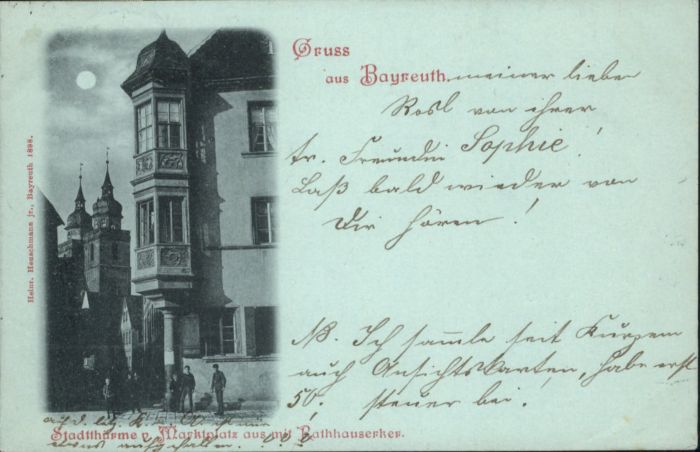 Gruss
aus Bayreuth. meiner lieben
Rosl von ihrer
tr. Freundin Sophie!
Laß bald wieder von
Dir hören!
NB. Ich sammle seit Kurzem
auch Ansichtskarten, habe erst
50; steuer bei.
Stadtthürme v. Marktplatz aus mit Rathhauserker.
Heinr. Heuschmann jr., Bayreuth 1898.